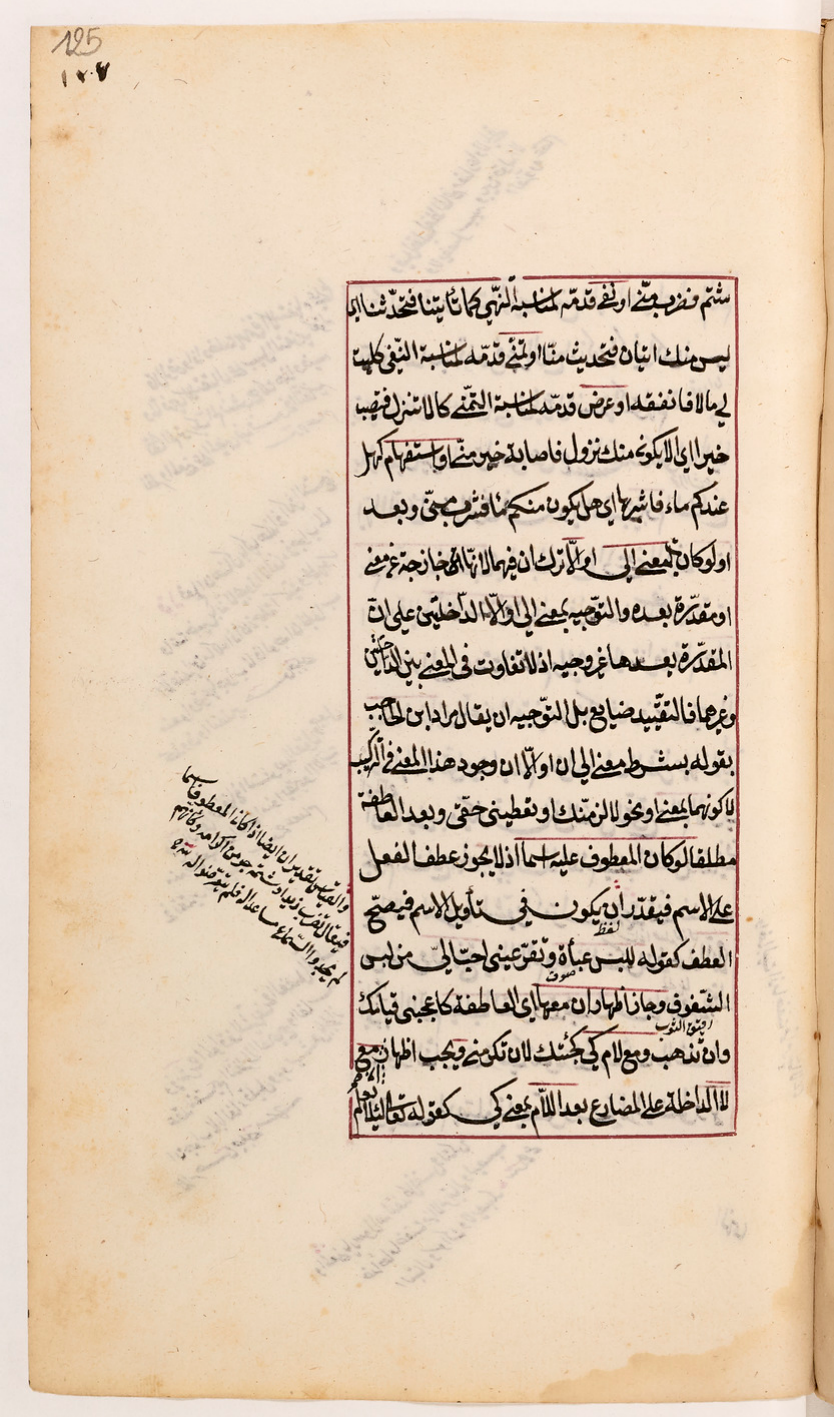 125
١٢٧
شتم فضرب منّي او نفي قدمّه لمناسبة النّهي كما تأتينا فتحدّثنا اي
ليس منك اتيان فتحديث منّا او تمنّي قدمّه لمناسبة النّفي كليت
لي مالا فانفقه او عرض قدمّه لمناسبة التمّني كالا تنزل فتصب
خيرا اي الا يكون منك نزول فاصابة خير منّا او استفهام كهل
عندكم ماء فاشربها اي هل يكون منكم ماء فشرب منّي وبعد
او لو كان بمعنى الى او الّا ترك ان فيهما لانها اي خارجة عن معنى
او مقدّرة بعده والتوّجيه بمعنى الى او الّا الدّاخلتين على ان
المقدّرة بعدها غير وجيه اذ لا تفاوت في المعنى بين الداخلتين
وغيرهما فالتقيّيد ضايع بل التوّجيه ان يقال مراد ابن الحاجب
بقوله بشرط معنى الى ان او الّا ان وجود هذا المعنى في التركيب
لا كونهما بمعنى او نحو لالزمنّك او تعطيني حقّي وبعد العاطفة
مطلقا لو كان المعطوف عليه اسما اذ لا يجوز عطف الفعل
على الاسم فيقدّر ان يكون في تأويل الاسم فيصحّ
العطف كقوله للبس عبأة وتقرّ عيني احبّ اليّ من لبس
لفظ
الشّفوف وجاز اظهار ان معها اي العاطفة كاعجبني قيامك
صوف
وان تذهب ومع لام كي كجئتك لان تكرمني ويجب اظهار ان مع
رقيق الثوب
لا الداخلة على المضارع بعد اللاّم بمعنى كي كقوله تعالى لئلا يعلم
والقياس تقدير ان ايضا اذا كان المعطوف اسما